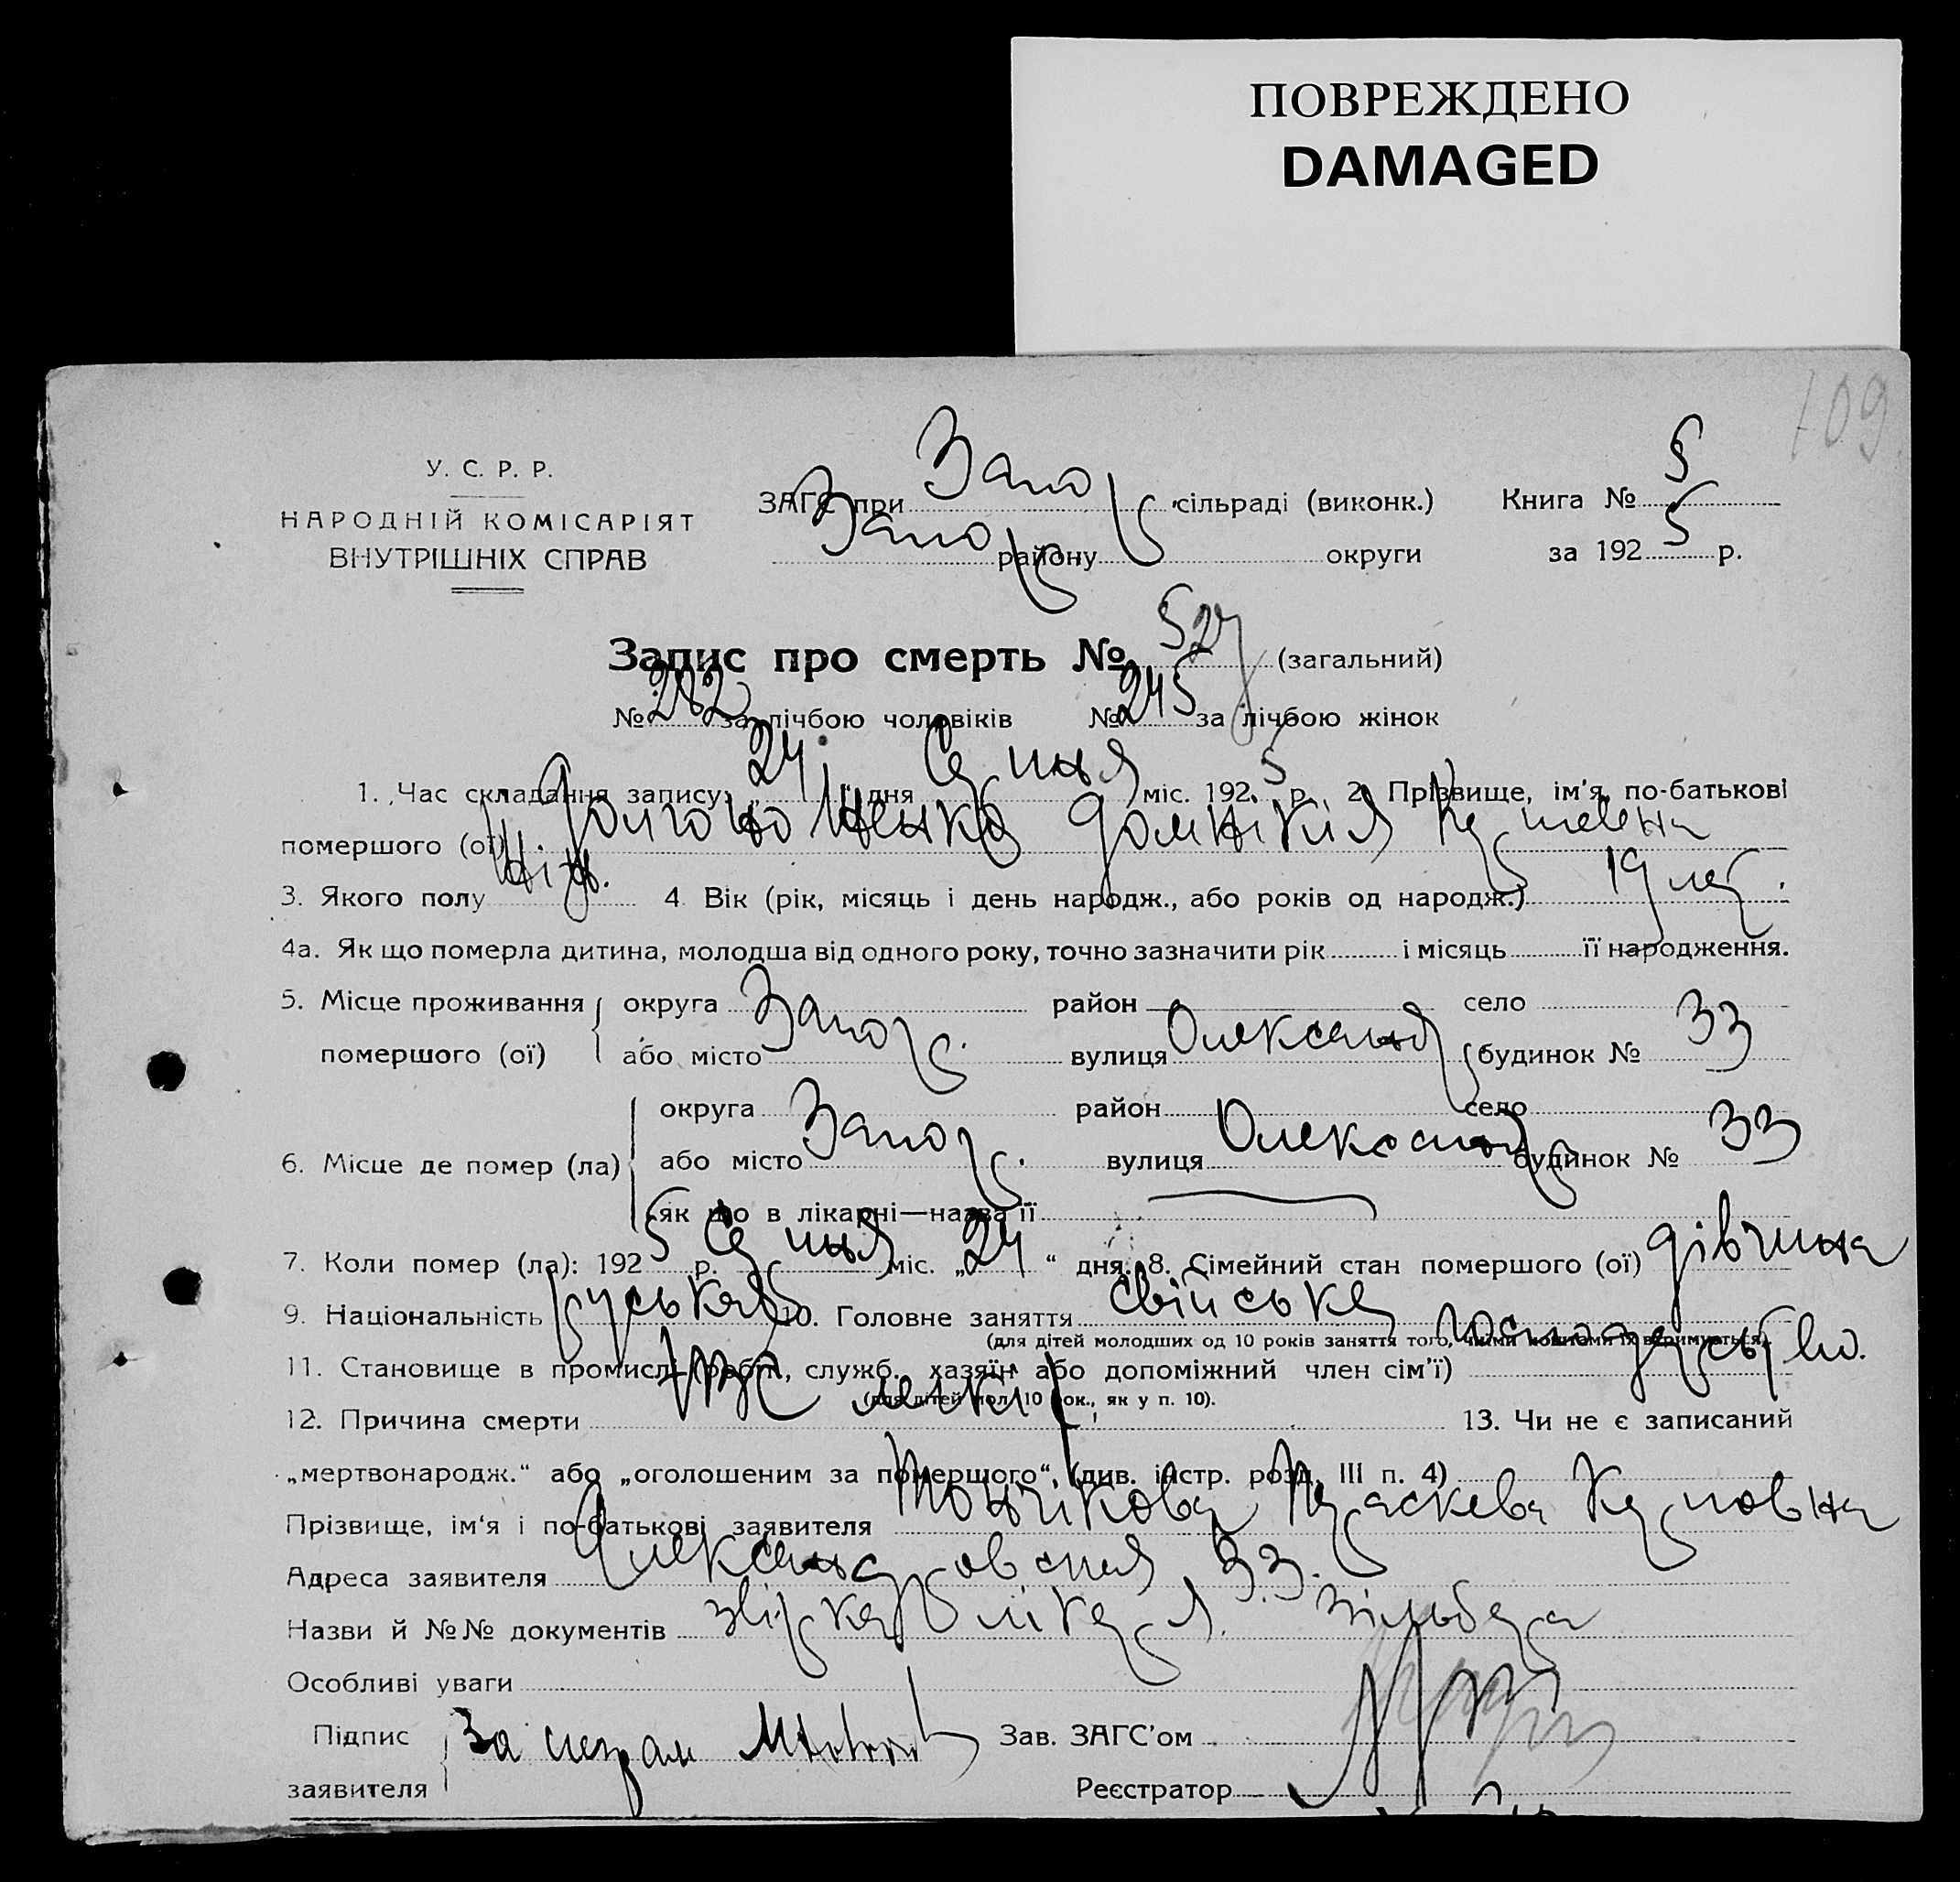 ПОВРЕЖДЕНО
DAMAGED
109
У. С. Р. Р.
НАРОДНІЙ КОМІСАРІЯТ
ВНУТРІШНІХ СПРАВ
ЗАГС при Запор сільраді (виконк.) Книга № 5
Запор району округи за 192 5 р.
Запис про смерть № 527 (загальний)
№ 282 за лічбою чоловіків № 245 за лічбою жінок
1. Час складання запису: „ 24 " дня Серпня міс. 192 5 р. 2. Прізвище, ім'я, по-батькові
помершого (ої)
3. Якого полу жін. 4 Вік (рік, місяць і день народж., або років од народж.) 19 лет.
4а. Як що померла дитина, молодша від одного року, точно зазначити рік і місяць її народження.
5. Місце проживання округа район село
помершого (ої) або місто Запор. вулиця Олександр будинок № 33
округа район село
6. Місце де помер (ла) або місто Запор. вулиця Олександр будинок № 33
як що в лікарні—назва її
7. Коли помер (ла): 192 5 р. Серпня міс. „ 24 " дня. 8. Сімейний стан помершого (ої) дівчина
9. Національність руська 10. Головне заняття свійське господарство.
(для дітей молодших од 10 років заняття того, чиїми коштами їх втримується).
11. Становище в промислі (робіт., служб., хазяїн або допоміжний член сім'ї)
(для дітей мол. 10 рок., як у п. 10).
12. Причина смерти легких 13. Чи не є записаний
„мертвонародж." або „оголошеним за помершого", (див. інстр. розд. III п. 4)
Прізвище, ім'я і по-батькові заявителя Параскева Карповна
Адреса заявителя Олександровская 33.
Назви й №№ документів
Особливі уваги
Підпис За неграм Зав. ЗАГС'ом
заявителя Реєстратор